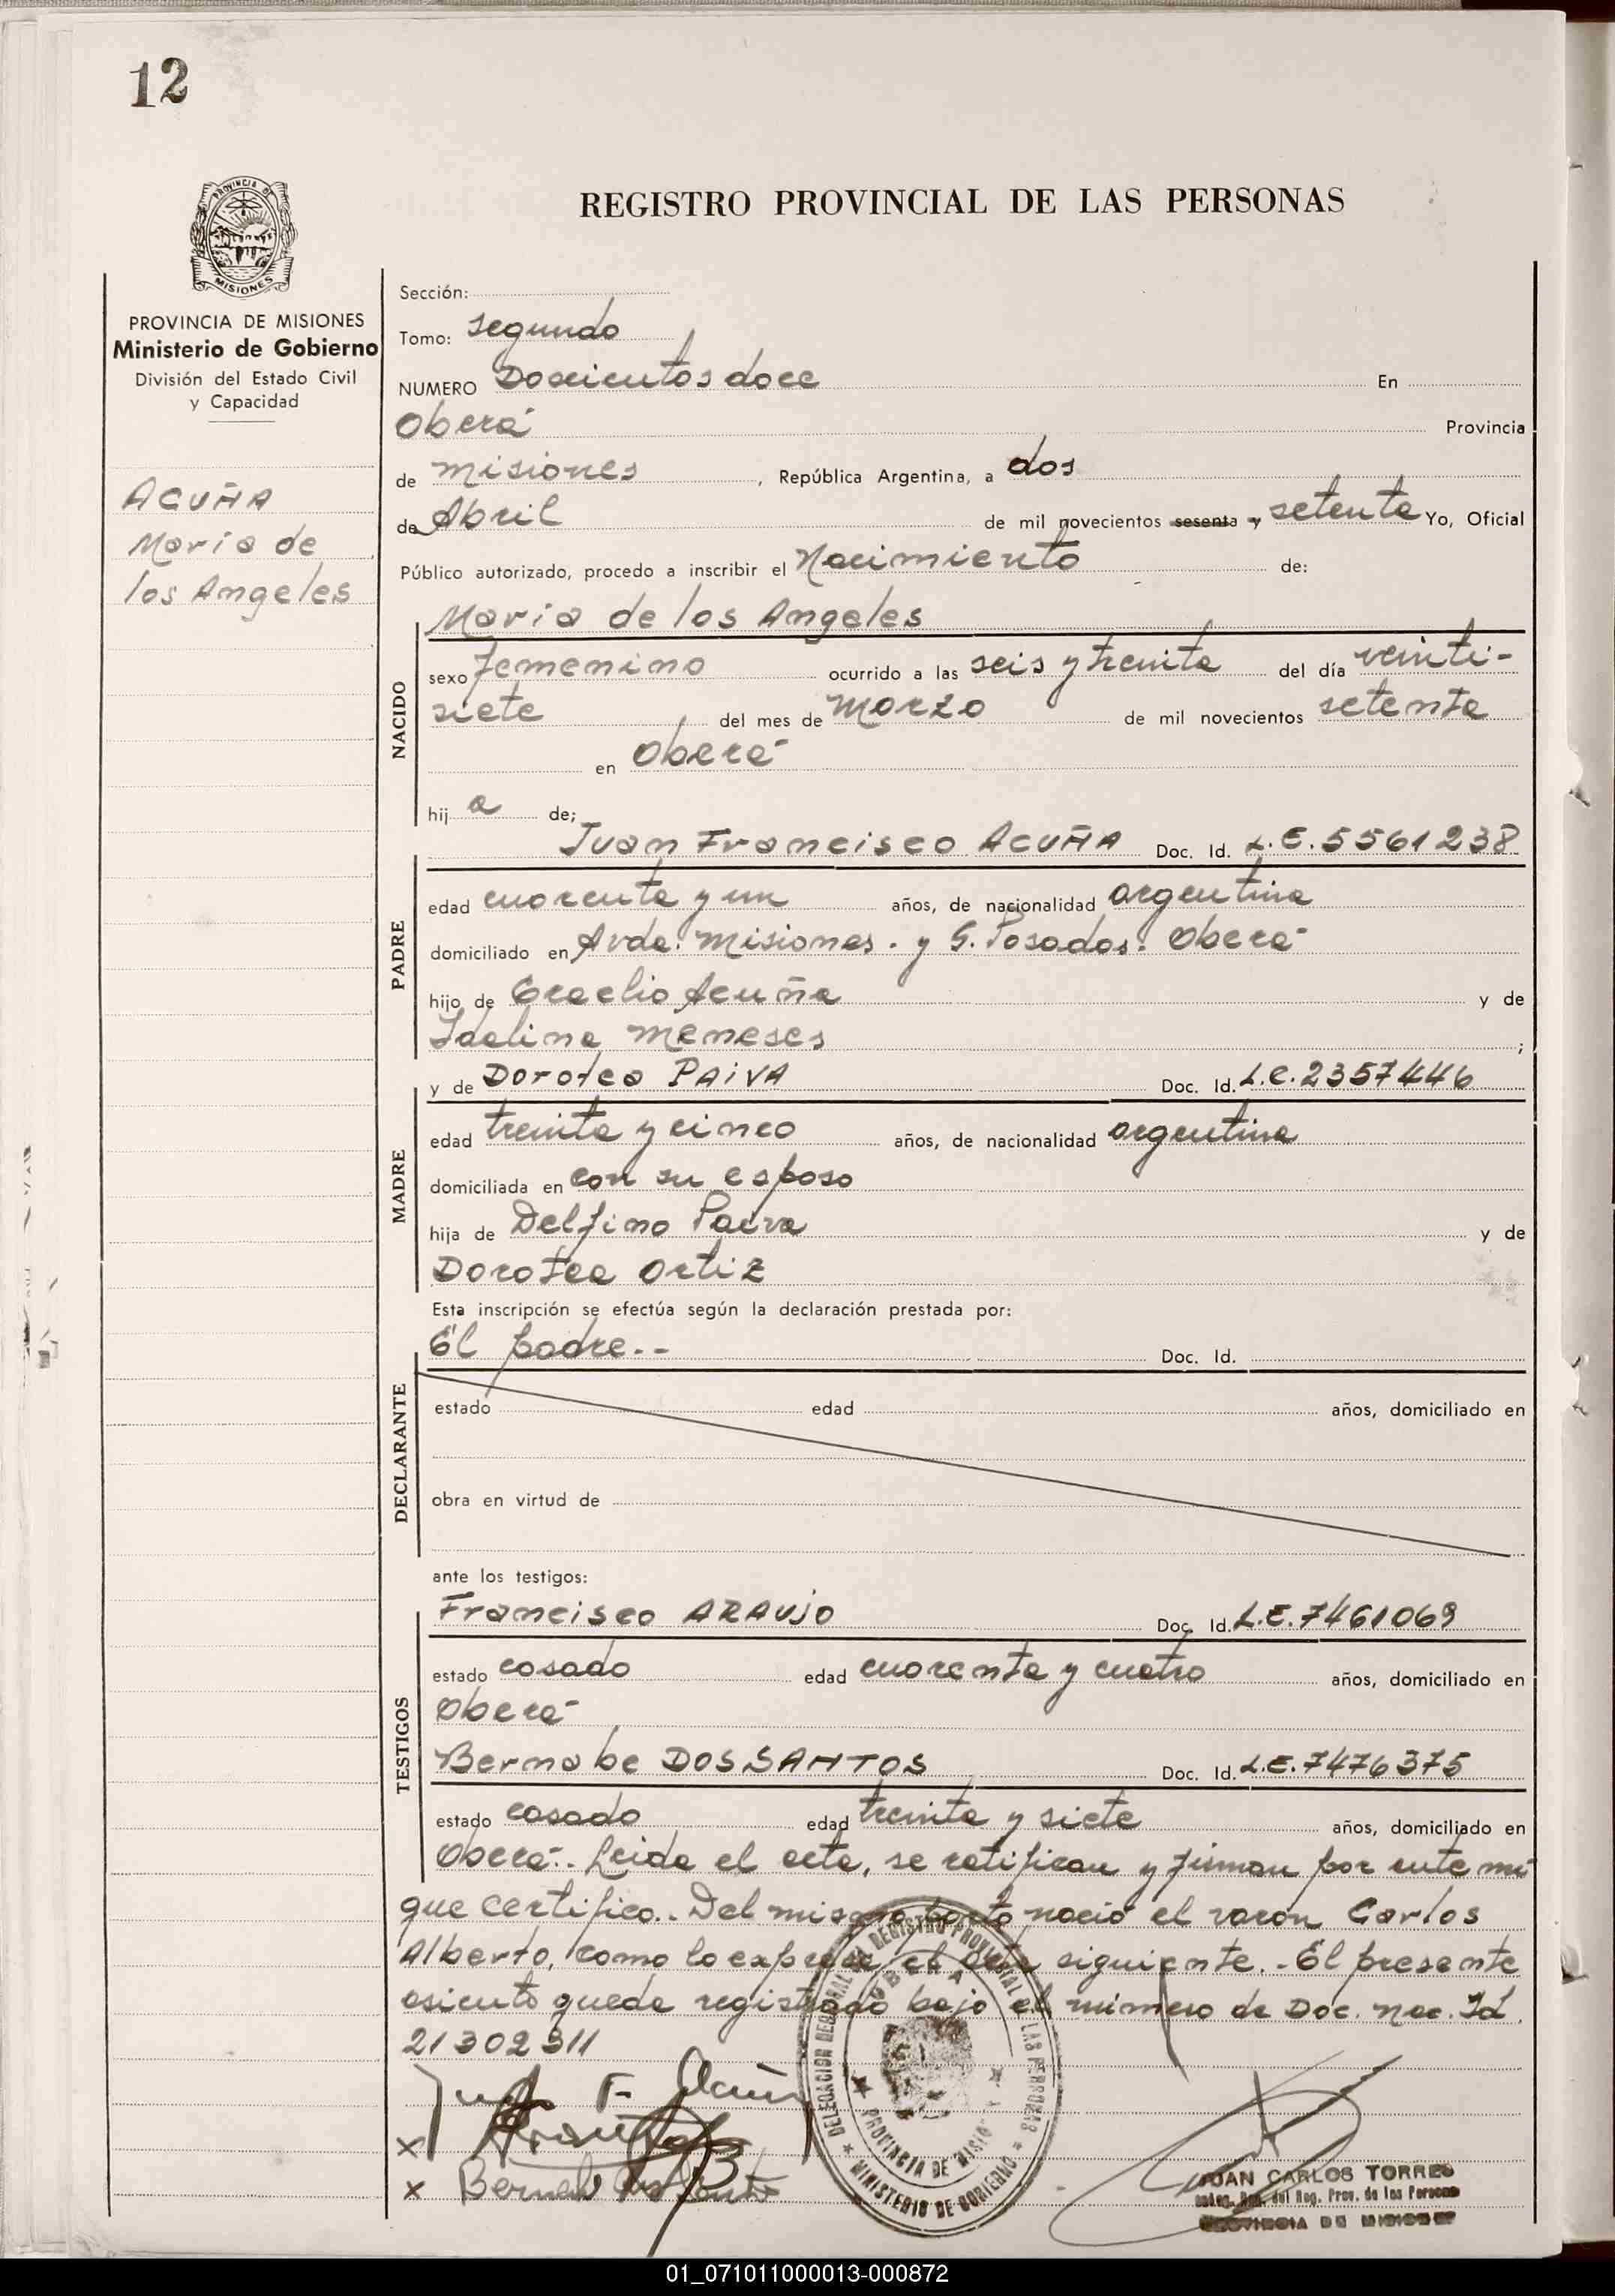 12
REGISTRO PROVINCIAL DE LAS PERSONAS
PROVINCIA DE
MISIONES
PROVINCIA DE MISIONES
Ministerio de Gobierno
División del Estado Civil
y Capacidad
ACUÑA
Maria de
los Angeles
Sección:
Tomo: segundo
NUMERO Doscientos doce En
Oberá Provincia
de misiones, República Argentina, a dos
de Abril de mil novecientos sesenta y setenta Yo, Oficial
Público autorizado, procedo a inscribir el Nacimiento de:
NACIDO
Maria de los Angeles
sexo femenino ocurrido a las seis y treinta del día veinti-
siete del mes de marzo de mil novecientos setenta
en Oberá
hij a de;
PADRE
Juan Francisco ACUÑA Doc. Id. L.E. 5561238
edad cuarenta y un años, de nacionalidad argentina
domiciliado en Avda. Misiones. y G. Posadas. Oberá
hijo de Acuña y de
Meneses ;
MADRE
y de Dorotea PAIVA Doc. Id. L.C. 2357446
edad treinta y cinco años, de nacionalidad argentina
domiciliada en con su esposo
hija de Delfino Paiva y de
Dorotea Ortiz
Esta inscripción se efectúa según la declaración prestada por:
DECLARANTE
El padre.-- Doc. Id.
estado edad años, domiciliado en
obra en virtud de
ante los testigos:
TESTIGOS
Francisco ARAUJO Doc. Id. L.E. 7461069
estado casado edad cuarenta y cuatro años, domiciliado en
Oberá
Bernabe DOS SANTOS Doc. Id. L.E. 7476375
estado casado edad treinta y siete años, domiciliado en
Oberá.- Leida el acta, se ratifican y firman por ante mi
que certifico.- Del mismo parto nació el varón Carlos
Alberto, como lo expresa el acta siguiente.- El presente
asiento queda registrado bajo el número de Doc. Nac. Id.
21302311
Juan F. Acuña
x
x Bernabe Dos Santos
DELEGACION REGIONAL DEL REGISTRO PROVINCIAL DE LAS PERSONAS
OBERA
PROVINCIA DE MISIONES
MINISTERIO DE GOBIERNO
JUAN CARLOS TORRES
del Reg. Prov. de las Personas
PROVINCIA DE MISIONES
01_071011000013-000872